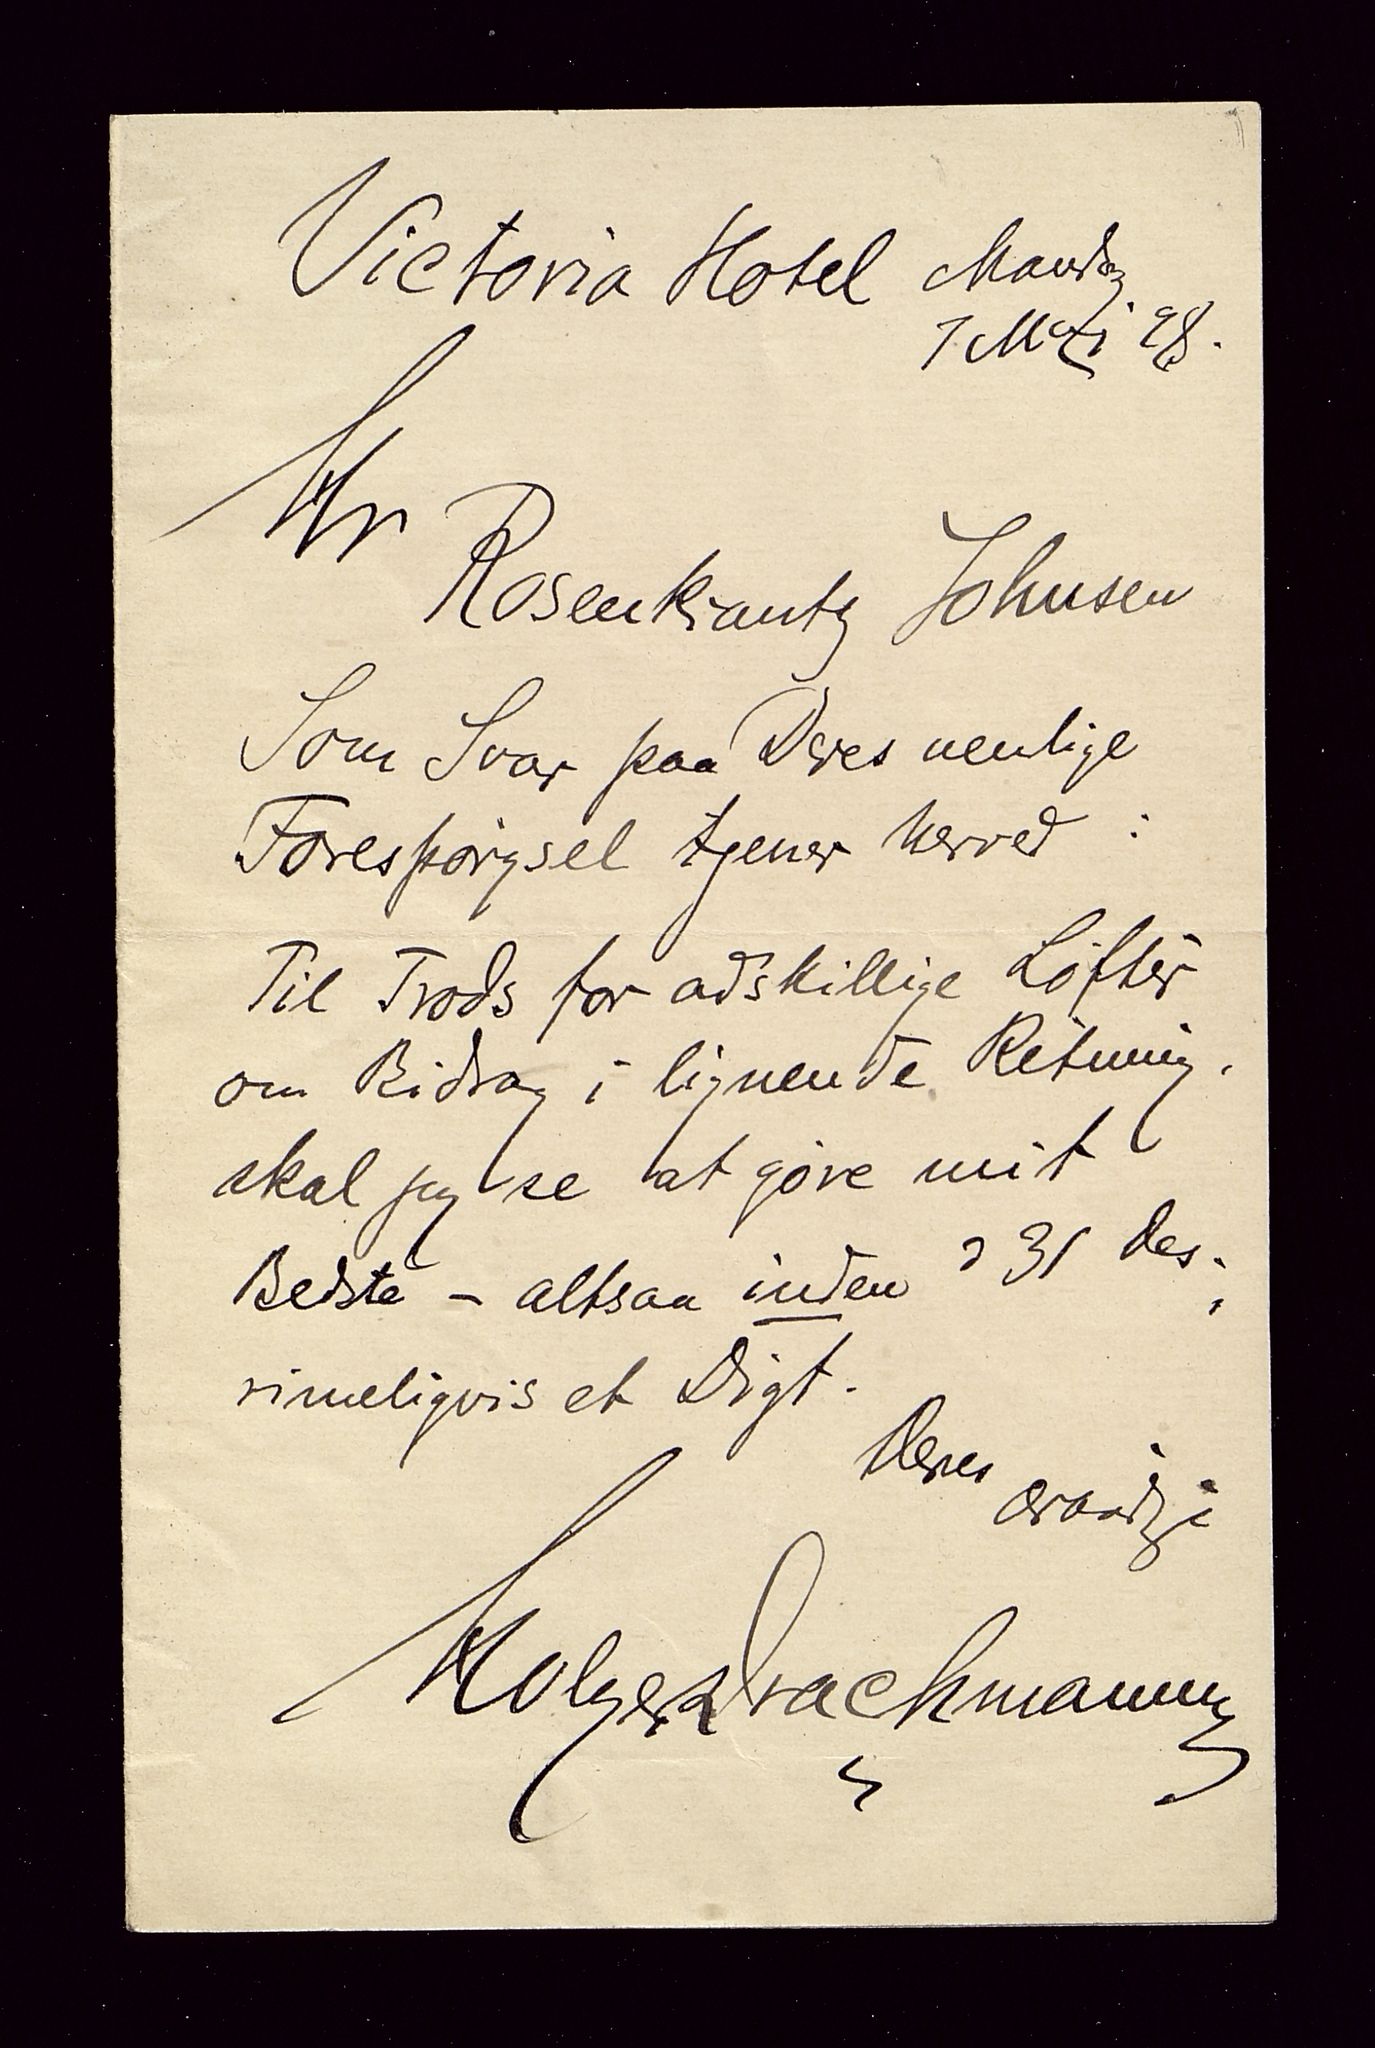 Victoria Hotel Mandag
Mai 98.
Hr
Rosenkrantz Johnsen
Som Svar paa Deres venlige
Forespørgsel tjener herved:
Til Trods for adskillige Løfter
om Bidrag i lignende Retning.
skal jeg se at gøre mit
Bedste – altsaa inden d 31 Des.;
rimeligvis et Digt.
Deres
ærbødige
Holger Drachmann